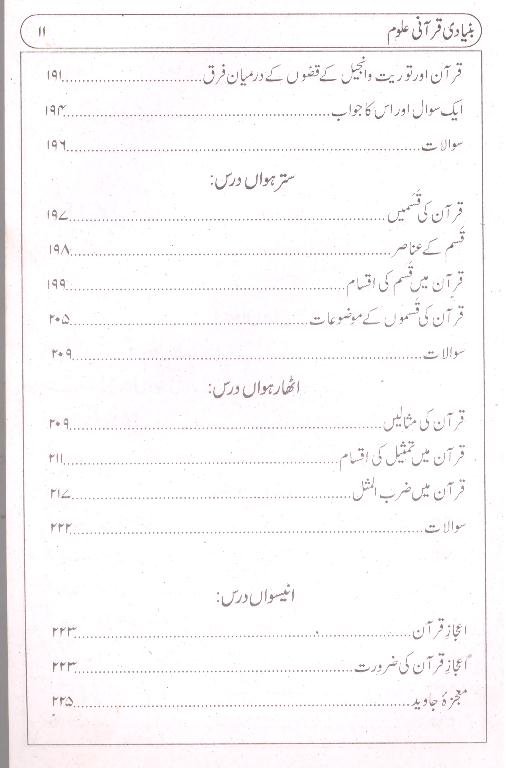 بنیادی قرآنی علوم ۱۱
قرآن اور توریت و انجیل کے قصّوں کے درمیان فرق ۱۹۱
ایک سوال اور اس کا جواب ۱۹۴
سوالات ۱۹۶
سترہواں درس:
قرآن کی قَسَمیں ۱۹۷
قَسم کے عناصر ۱۹۸
قرآن میں قَسم کی اقسام ۱۹۹
قرآن کی قَسموں کے موضوعات ۲۰۵
سوالات ۲۰۹
اٹھارہواں درس:
قرآن کی مثالیں ۲۰۹
قرآن میں تمثیل کی اقسام ۲۱۱
قرآن میں ضرب المثل ۲۱۷
سوالات ۲۲۲
انیسواں درس:
اعجازِ قرآن ۲۲۳
اعجازِ قرآن کی ضرورت ۲۲۳
معجزۂ جاوید ۲۲۵